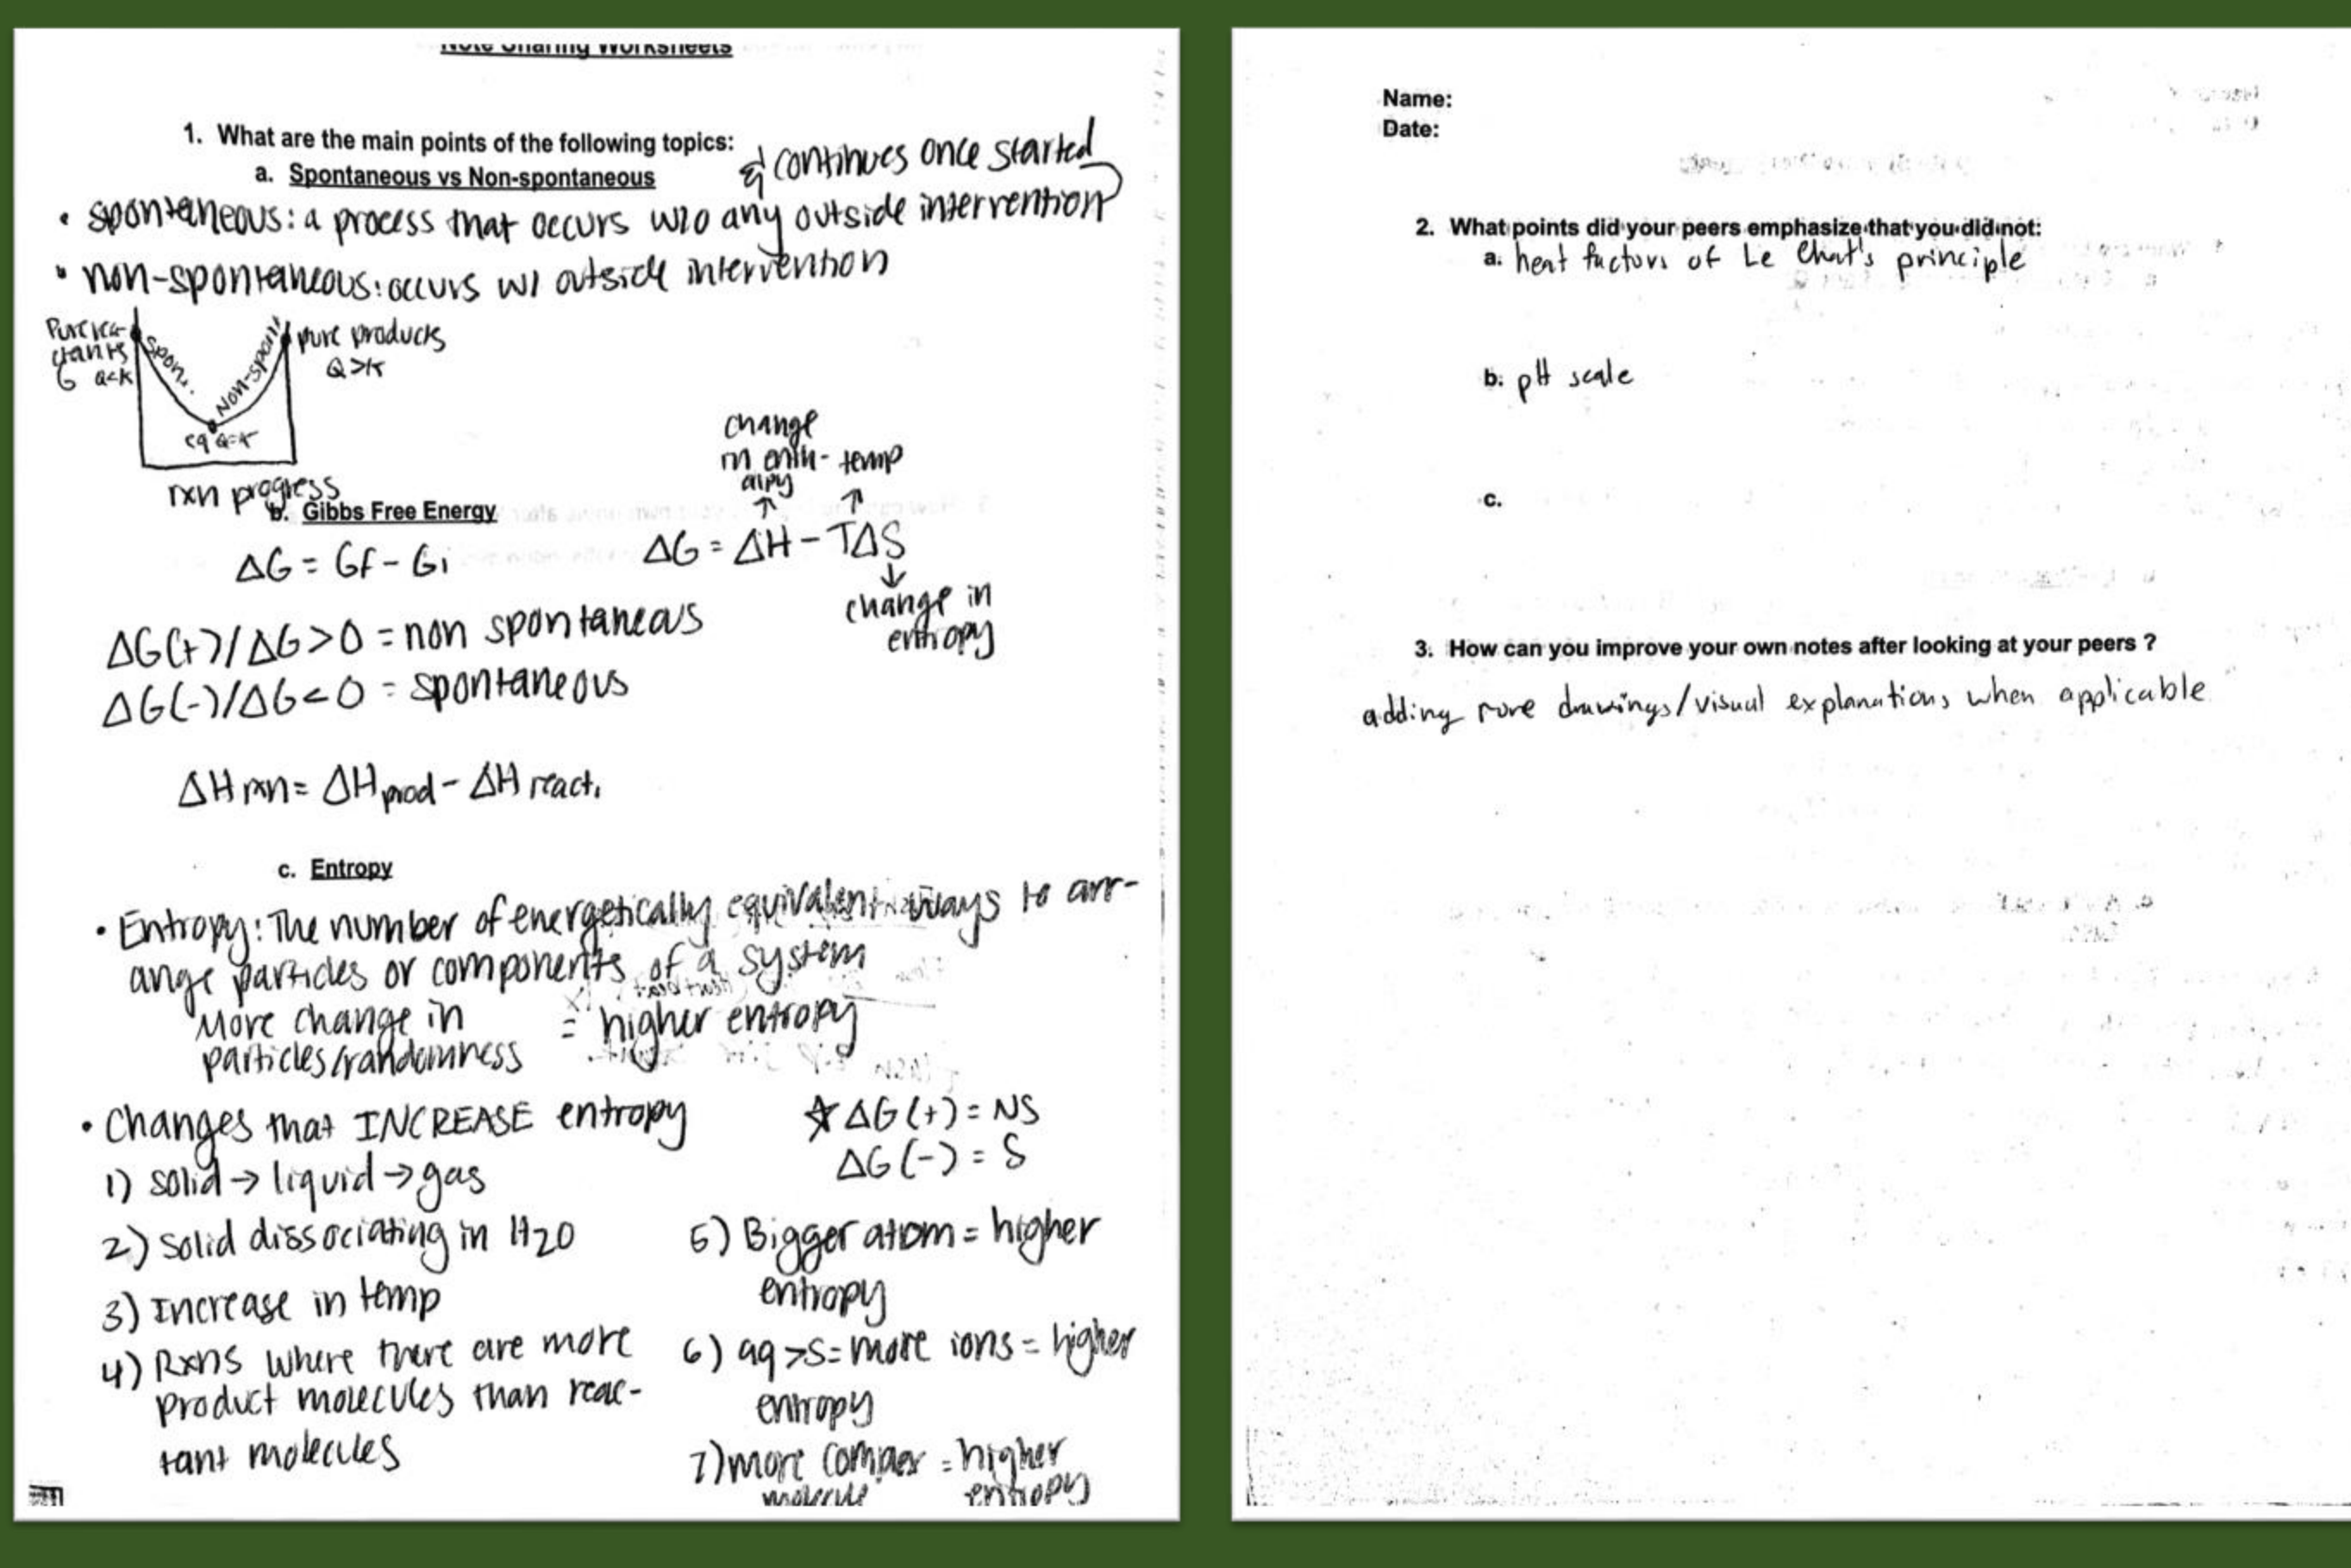 Note Sharing Worksheets
1. What are the main points of the following topics:
a. Spontaneous vs Non-spontaneous
& continues once started
• spontaneous: a process that occurs w/o any outside intervention
• non-spontaneous: occurs w/ outside intervention
Pure rea-
ctants
G Q<K
spon.
Non-spon
pure products
Q>K
eq Q=K
rxn progress
b. Gibbs Free Energy
change
in enth- temp
alpy
↑ ↑
ΔG = Gf - Gi
ΔG = ΔH - TΔS
↓
change in
entropy
ΔG(+)/ΔG>0 = non spontaneous
ΔG(-)/ΔG<0 = spontaneous
ΔH rxn = ΔH prod - ΔH react.
c. Entropy
• Entropy: The number of energetically equivalent ways to arr-
ange particles or components of a system
More change in
particles/randomness
= higher entropy
• Changes that INCREASE entropy
1) solid → liquid → gas
2) solid dissociating in H2O
3) Increase in temp
4) Rxns where there are more
product molecules than reac-
tant molecules
☆ ΔG (+) = NS
ΔG (-) = S
5) Bigger atom = higher
entropy
6) aq > S = more ions = higher
entropy
7) more = higher
molecule entropy
Name:
Date:
2. What points did your peers emphasize that you did not:
a. heat factors of Le Chat's principle
b. pH scale
c.
3. How can you improve your own notes after looking at your peers ?
adding more drawings/visual explanations when applicable